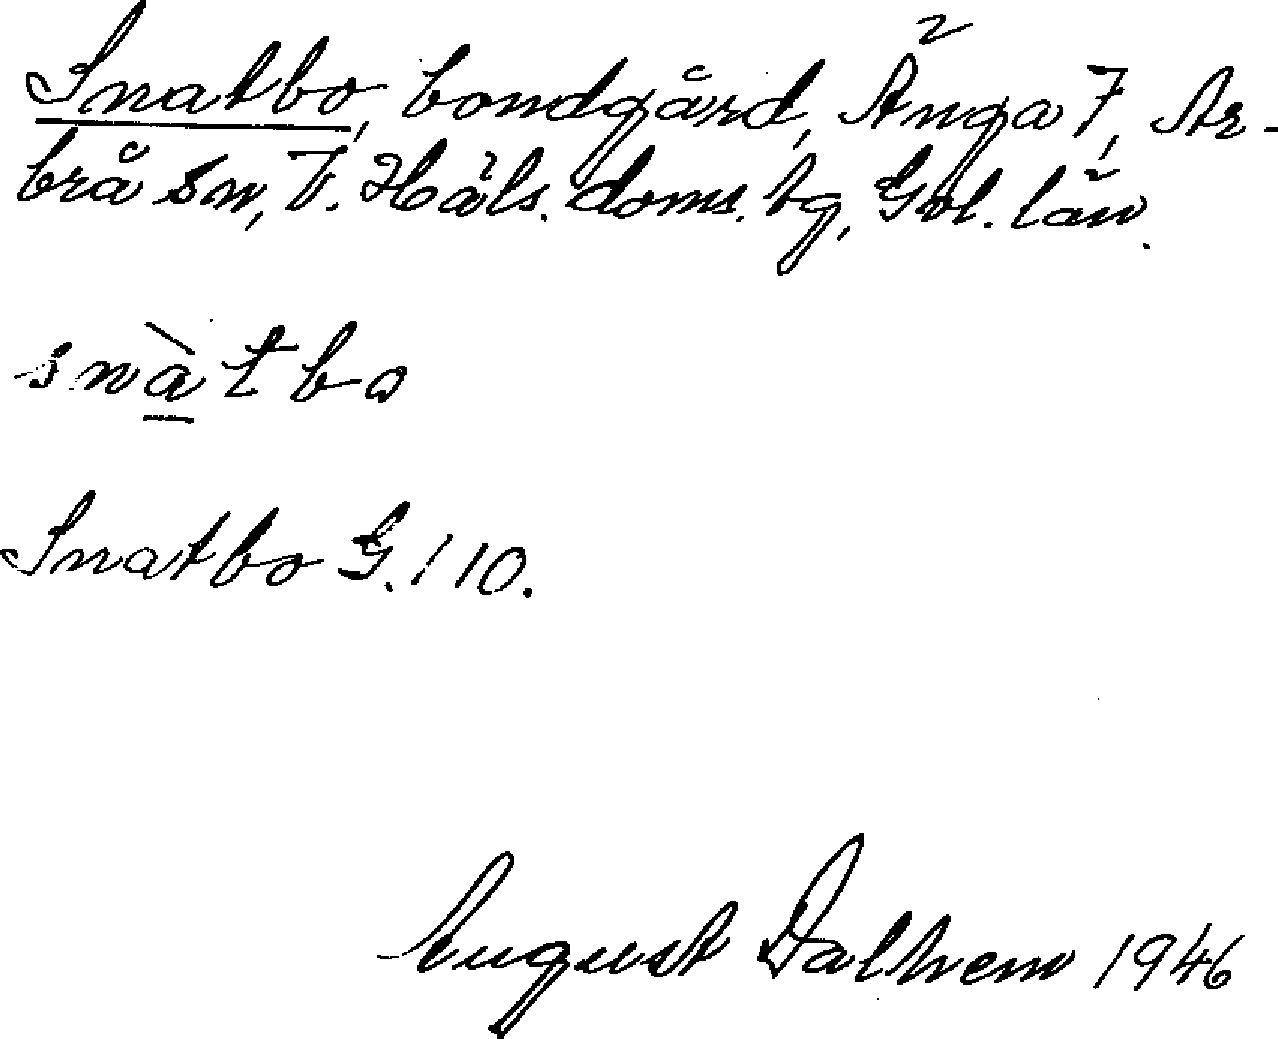 Snatbo, bondgård, Änga 7, Ar-
brå sn, V. Häls. doms. tg, Gvl. län.
snàtbo
Snatbo G. 110.
August Dalhem 1946